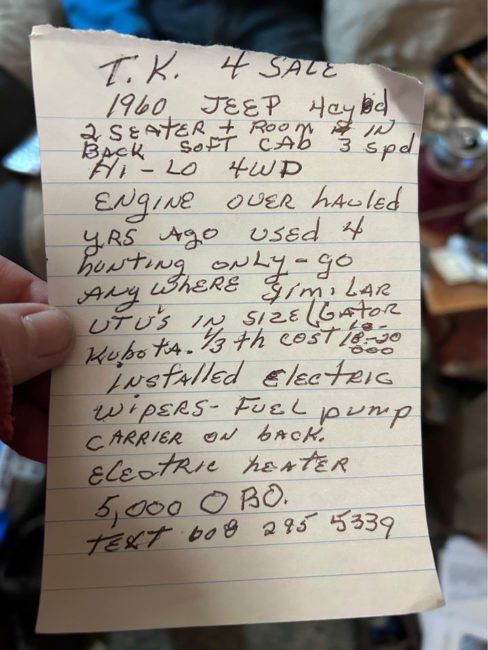 T.K. 4 SALE
1960 JEEP 4cyld
2 SEATER + ROOM IN
BACK SOFT CAB 3 Spd
Hi-LO 4WD
ENGINE OVER hAULED
YRS AGO USED 4
hUNTING ONLY - GO
ANY WHERE SIMILAR
UTU'S IN SIZE (GATOR
KUBOTA. 1/3 th COST 18-20
000
INSTALLED ELECTRIC
WIPERS - FUEL PUMP
CARRIER ON BACK.
ELECTRIC HEATER
5,000 OBO.
TEXT 608 295 5339